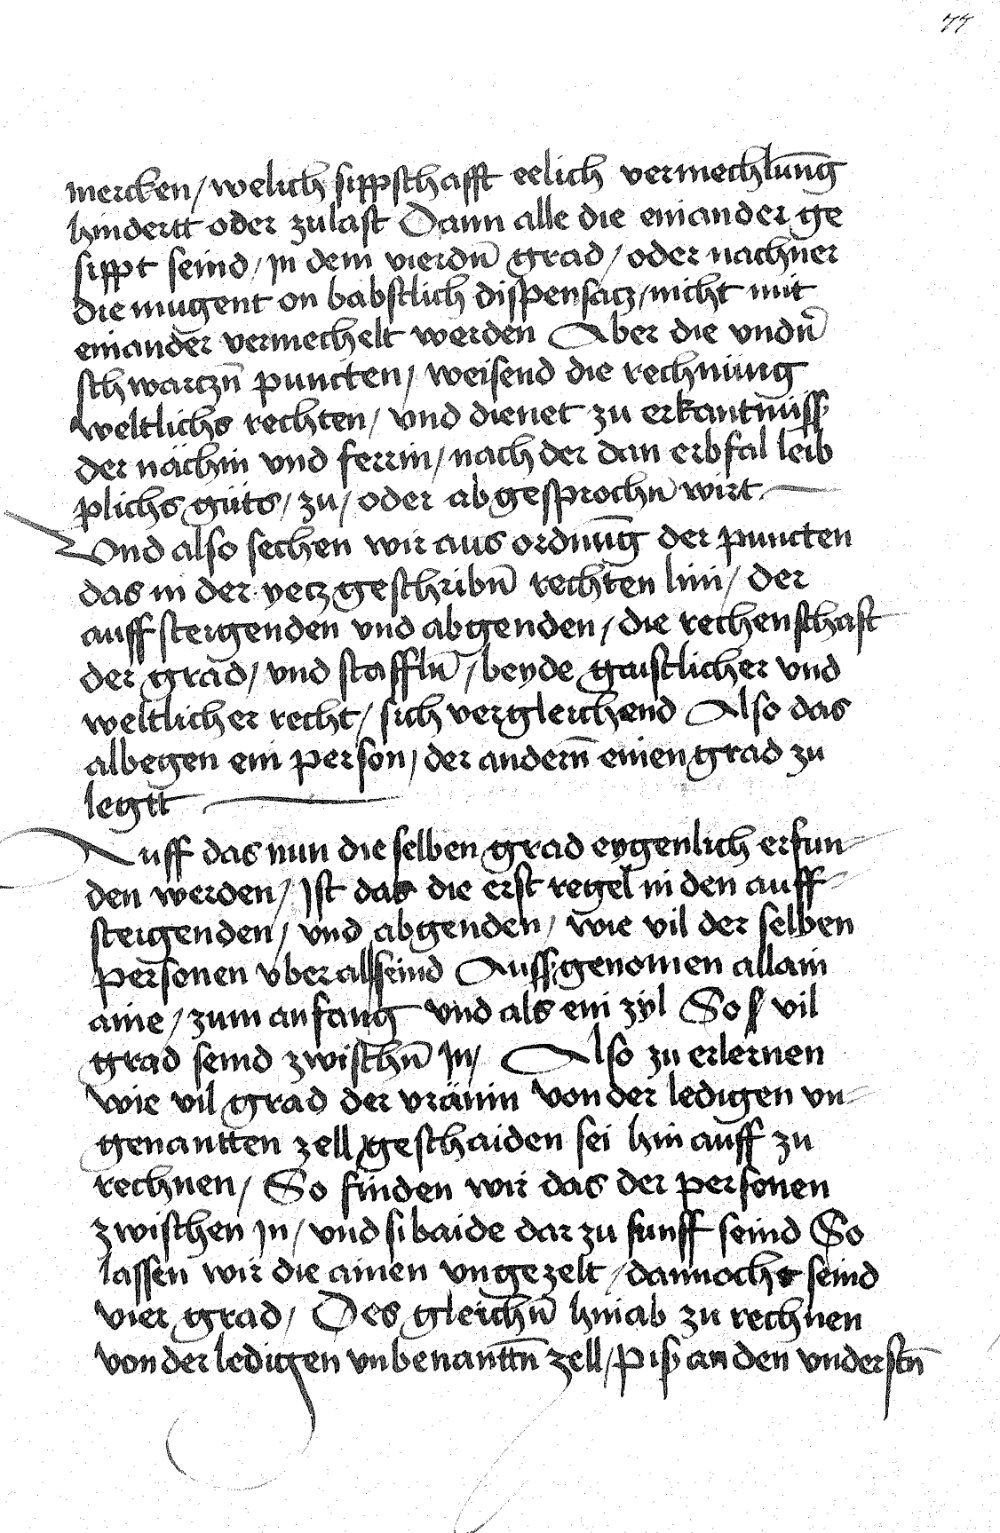 77
mercken / welich sippschafft eelich vermechlūng
hindertt oder zulast Dann alle die einander ge
sippt seind / in dem vierdn̄ grad / oder nachner
die mugent on babstlich dispensatz / nicht mit
einander vermechelt werden Aber die vndn̄
schwartzn̄ puncten / weisend die rechnüng
weltlichs rechten / vnd dienet zu erkantnüss
der nächin vnd ferrin / nach der dan erbfal leib
plichs güts / zu / oder abgesprochn̄ wirt
Vnd also sechen wir aus ordnūng der puncten
das in der yetzgeschribn̄ rechten lini / der
auffsteigenden vnd abgenden / die rechenschaft
der grad / vnd staffln̄ / beyde gaistlicher vnd
weltlicher recht / sich vergleichend Also das
albegen ein person / der andern̄ einen grad zu
legtt
Auff das nun die selben grad eygenlich erfun-
den werden / Ist das die erst regel in den auff-
steigenden / vnd abgenden / wie vil der selben
personen vberall seind Aussgenomen allain
aine / zum anfang vnd als ein zyl So vil
grad seind zwischn̄ in / Also zu erlernen
wie vil grad der vränin von der ledigen vn-
genantten zell geschaiden sei hin auff zu
rechnen / So finden wir das der personen
zwischen in / vnd si baide dar zu funff seind So
lassen wir die ainen vngezelt / dannocht seind
vier grad / Des gleichn̄ hinab zu rechnen
von der ledigen vnbenanttn̄ zell / piß an den vnderstn̄